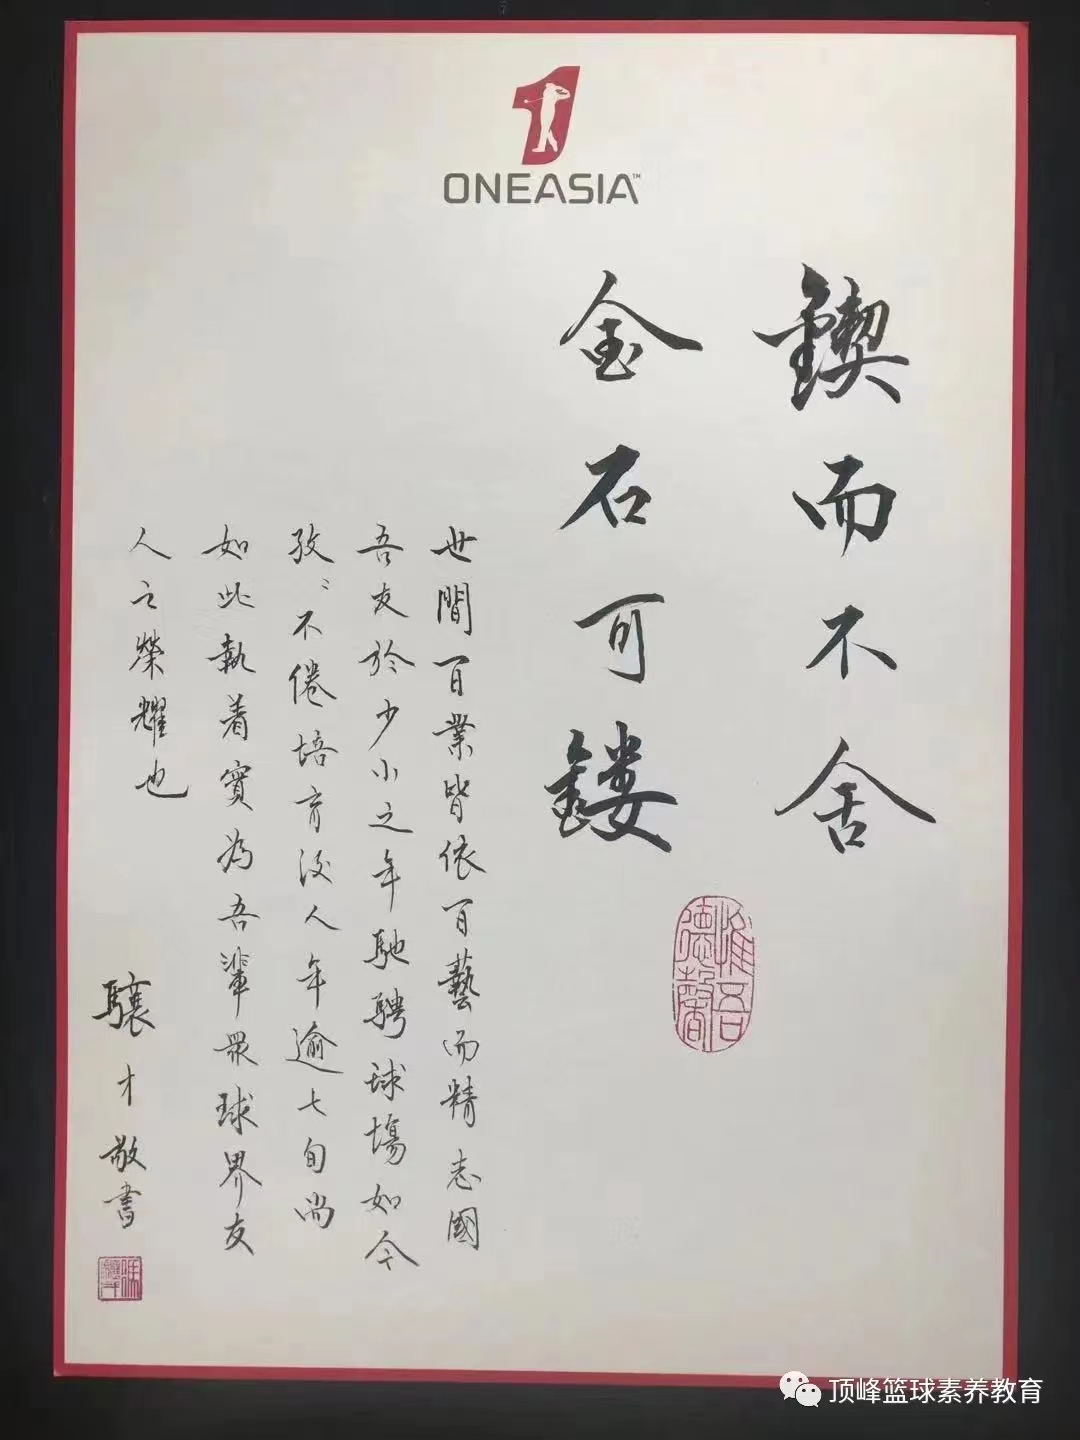 ONEASIA™
鍥而不舍
金石可鏤
惟吾
德馨
世間百業皆依百藝而精志國
吾友於少小之年馳騁球場如今
孜〻不倦培育後人年逾七旬尚
如此執着實為吾輩眾球界友
人之榮耀也
驤才敬書
顶峰篮球素养教育